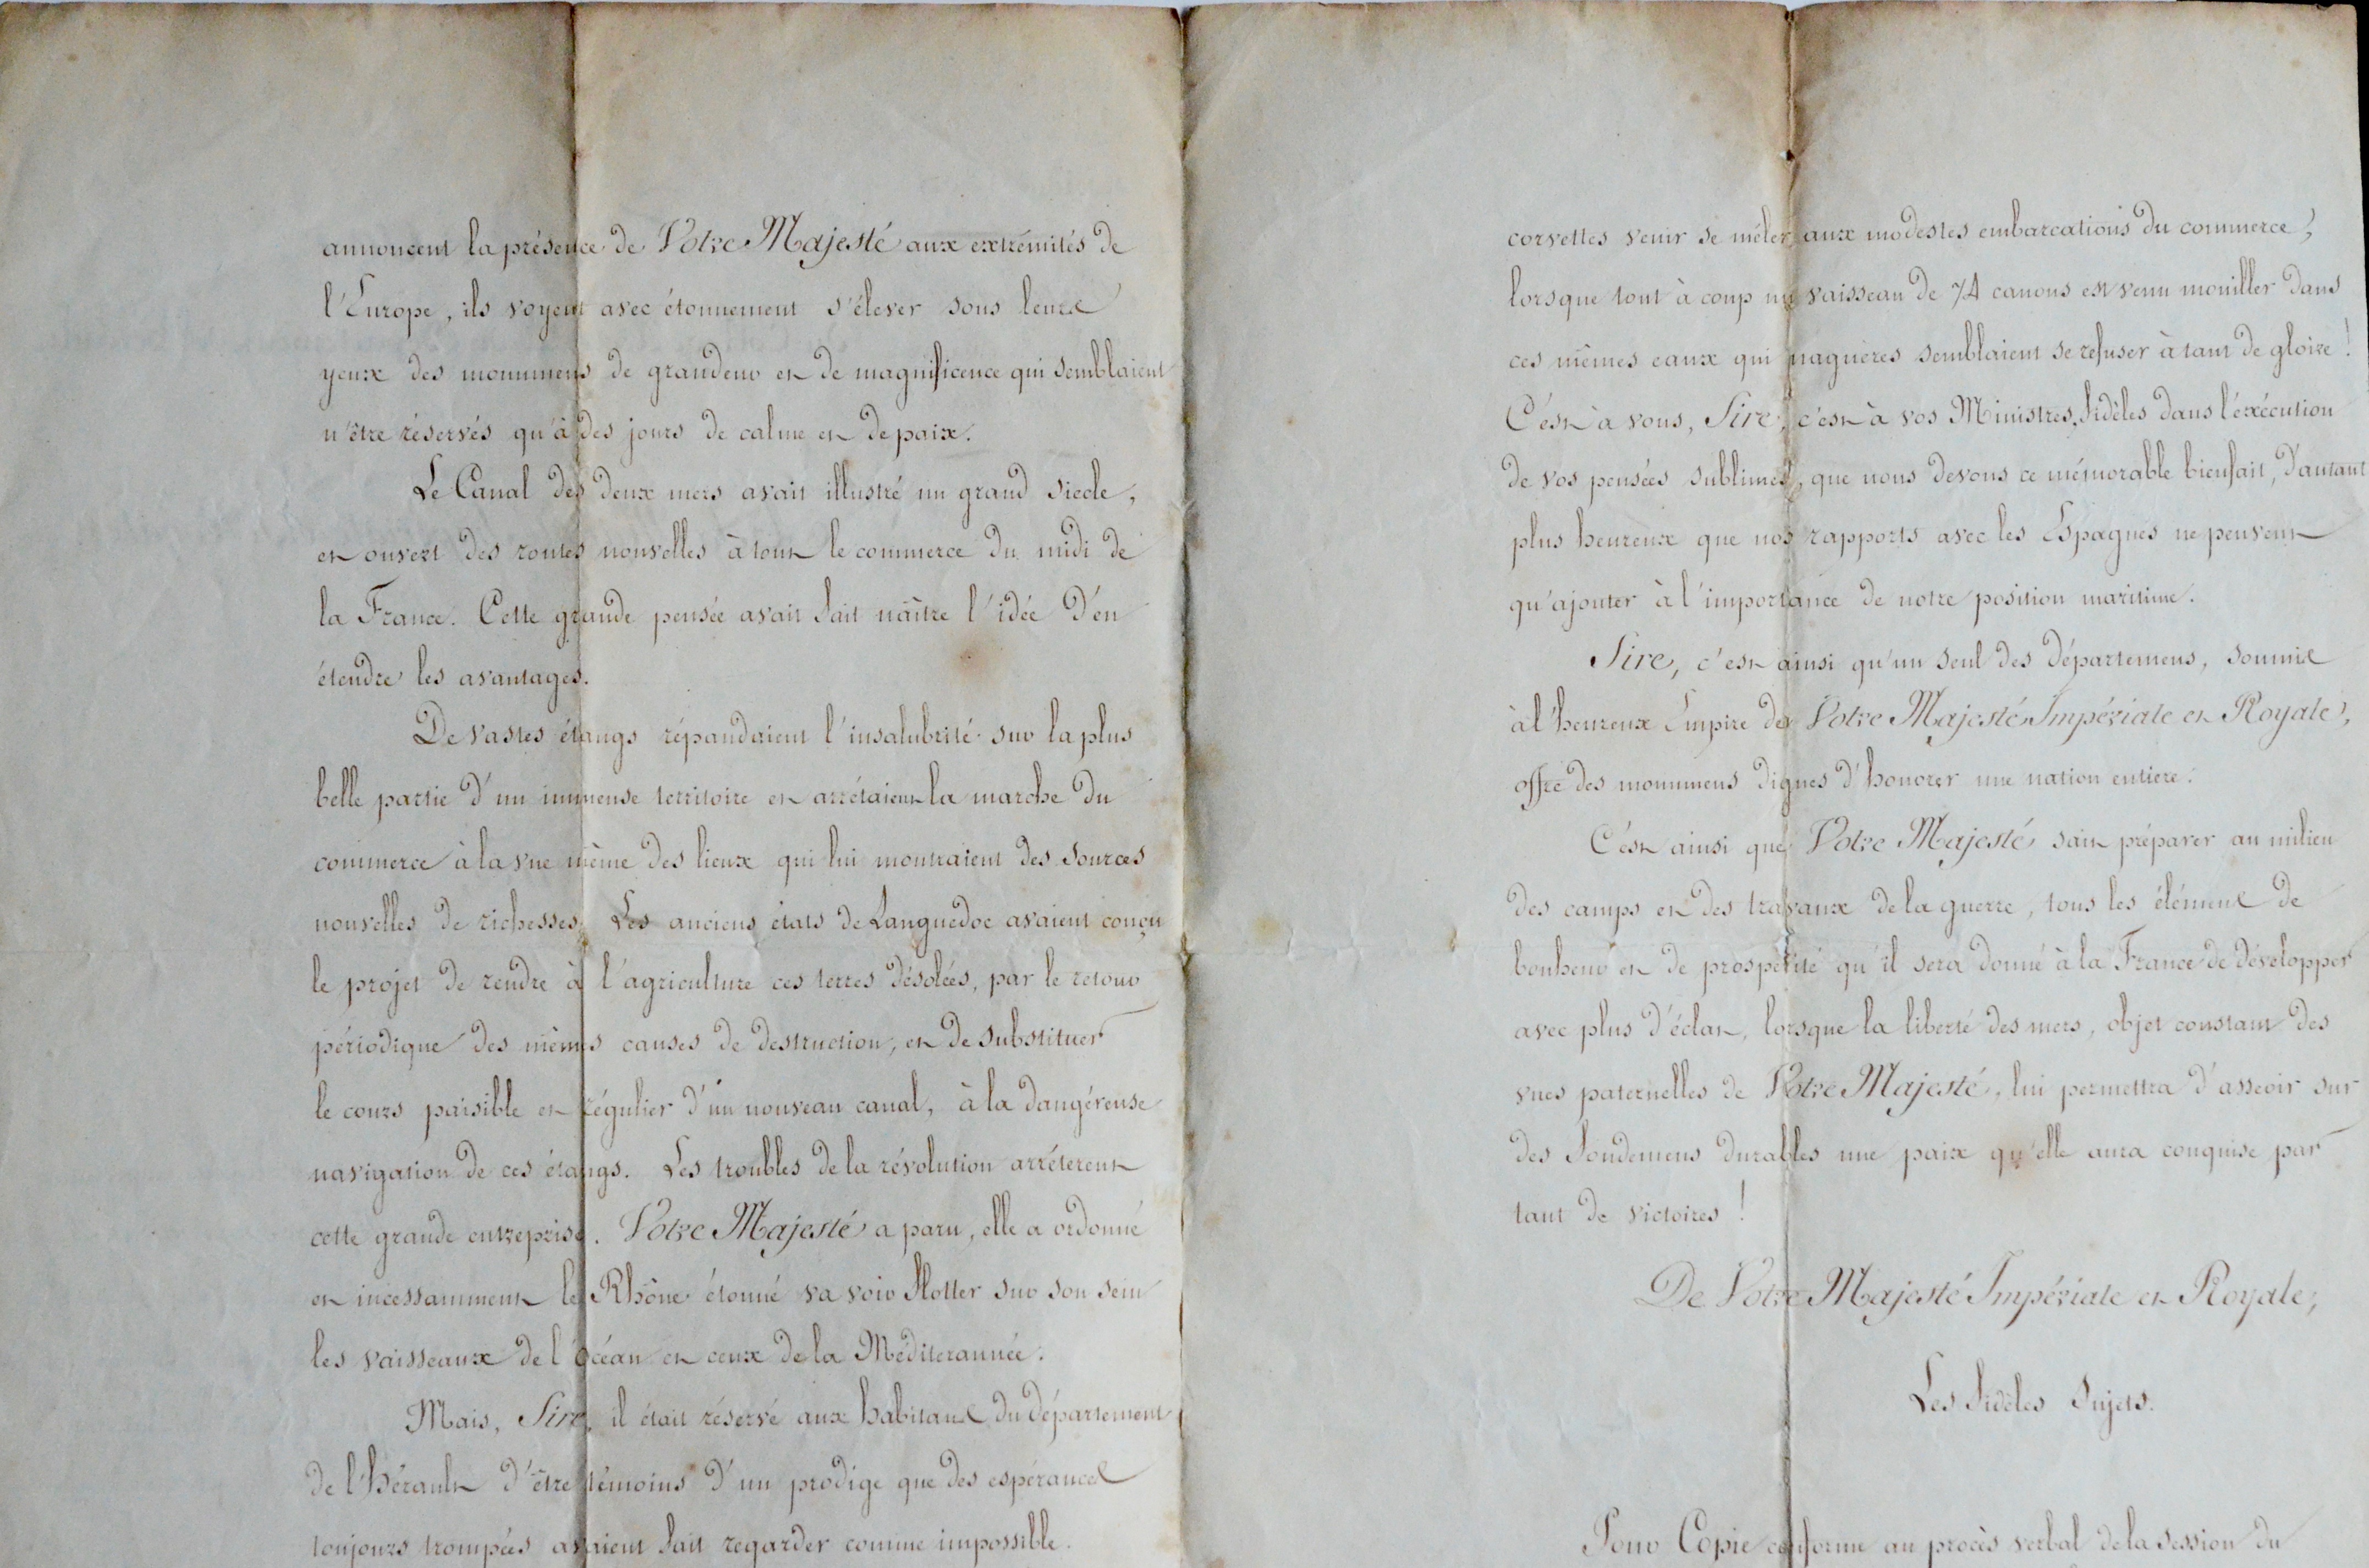 annoncent la présence de Votre Majesté aux extrémités de
l'Europe, ils voyent avec étonnement s'élever sous leurs
yeux des monumens de grandeur et de magnificence qui semblaient
n'être réservés qu'à des jours de calme et de paix.
Le Canal des deux mers avait illustré un grand siecle,
et ouvert des routes nouvelles à tout le commerce du midi de
la France. Cette grande pensée avait fait naître l'idée d'en
étendre les avantages.
De vastes étangs répandaient l'insalubrité sur la plus
belle partie d'un immense territoire et arrétaient la marche du
commerce à la vue même des lieux qui lui montraient des sources
nouvelles de richesses. Les anciens états de Languedoc avaient conçu
le projet de rendre à l'agriculture ces terres désolées, par le retour
périodique des mêmes causes de destruction, et de substituer
le cours paisible et régulier d'un nouveau canal, à la dangéreuse
navigation de ces étangs. Les troubles de la révolution arréterent
cette grande entreprise. Votre Majesté a paru, elle a ordonné
et incessamment le Rhône étonné va voir flotter sur son sein
les vaisseaux de l'Océan et ceux de la Méditerannée.
Mais, Sire, il était réservé aux habitans du département
de l'hérault d'être témoins d'un prodige que des espérances
toujours trompées avaient fait regarder comme impossible.
corvettes venir se méler aux modestes embarcations du commerce,
lorsque tout à coup un vaisseau de 74 canons est venu mouiller dans
ces mêmes eaux qui naguères semblaient se refuser à tant de gloire !
C'est à vous, Sire, c'est à vos Ministres, fidèles dans l'exécution
de vos pensées sublimes, que nous devons ce mémorable bienfait, d'autant
plus heureux que nos rapports avec les Espagnes ne peuvent
qu'ajouter à l'importance de notre position maritime.
Sire, c'est ainsi qu'un seul des départemens, soumis
à l'heureux Empire de Votre Majesté Impériale et Royale,
offre des monumens dignes d'honorer une nation entiere.
C'est ainsi que Votre Majesté sait préparer au milieu
des camps et des travaux de la guerre, tous les élémens de
bonheur et de prospérité qu'il sera donné à la France de développer
avec plus d'éclat, lorsque la liberté des mers, objet constant des
vues paternelles de Votre Majesté, lui permettra d'asseoir sur
des fondemens durables une paix qu'elle aura conquise par
tant de victoires !
De Votre Majesté Impériale et Royale,
Les fidèles Sujets.
Pour Copie conforme au procès verbal de la session du